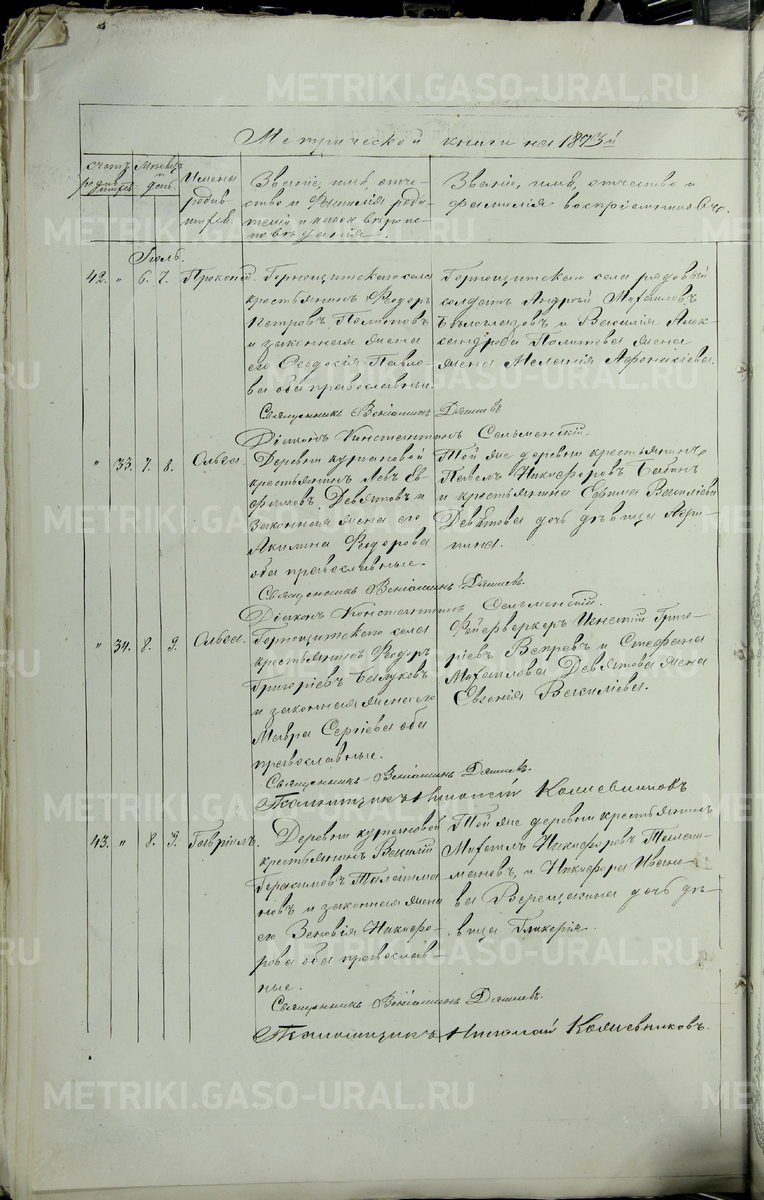 METRIKI.GASO-URAL.RU
Метрической книги на 1873й
Счетъ родив-шихся
Месяцъ и день.
Имена родив-шихся.
Званіе, имя, отче-
ство и фамилія роди-
телей и какого вѣроис-
повѣданія.
Званіе, имя, отчество и
фамилія воспріемниковъ.
Іюль.
42. " 6. 7. Прокопій.
Горнощитскаго села
крестьянинъ Ѳеодоръ
Петровъ
и законная жена
его Ѳеодосія Павло-
ва оба православные.
Горнощитскаго села рядовый
солдатъ Андрей Михаиловъ
Бѣлоглазовъ и Василія Алек-
сандрова жена
жена Меланія Афонасіева.
Священникъ Веніаминъ
Діаконъ Константинъ Сельменскій.
" 33. 7. 8. Ольга.
Деревни Кургановой
крестьянинъ Левъ Ев-
фимовъ Девятовъ и
законная жена его
Акилина Ѳеодорова
оба православные.
Той же деревни крестьянинъ
Павелъ Никифоровъ Бабинъ
и крестьянина Ефима Василіева
Девятова дочь дѣвица Ари-
шна.
Священникъ Веніаминъ
Діаконъ Константинъ Сельменскій.
" 34. 8. 9. Ольга.
Горнощитскаго села
крестьянинъ Ѳеодоръ
Григоріевъ
и законная жена его
Мавра Сергіева оба
православные.
Фейерверкеръ Игнатій Григо-
ріевъ Вепревъ и Стефана
Михаилова Девятова жена
Евгенія Василіева.
Священникъ Веніаминъ
Николай Колпевниковъ
43. " 8. 9. Гавріилъ.
Деревни Кургановой
крестьянинъ Василій
Герасимовъ Талашма
новъ и законная жена
его Зеновія Никифо-
рова оба православ-
ные.
Той же деревни крестьянинъ
Михаилъ Никифоровъ Талаш-
мановъ, и Никифора Ивано-
ва Верещагина дочь дѣ-
вица Гликерія.
Священникъ Веніаминъ
Николай Колпевниковъ.